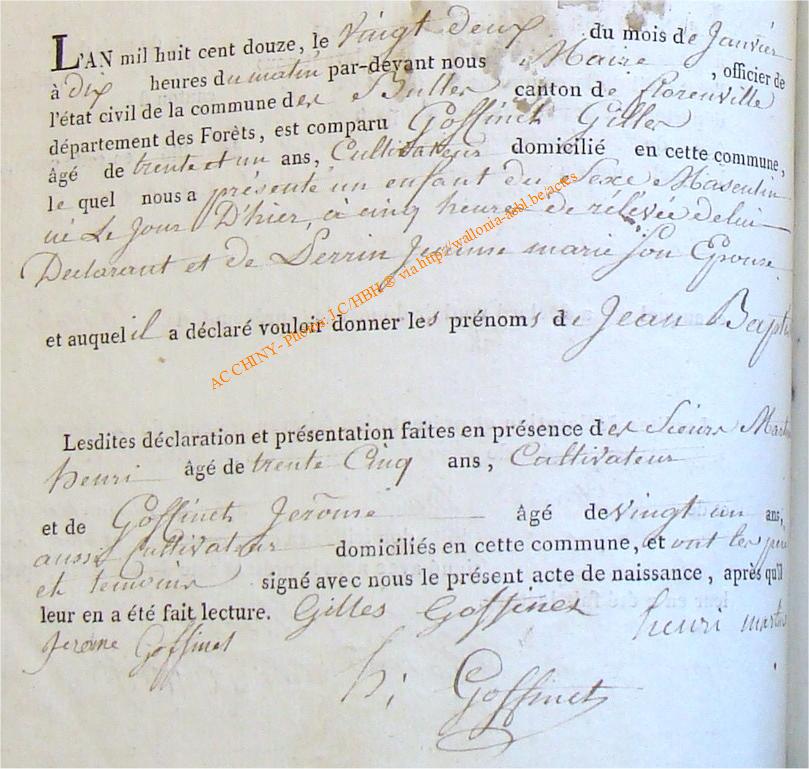 L'AN mil huit cent douze, le Vingt deux du mois de Janvier
à Dix heures du matin par-devant nous Maire, officier de
l'état civil de la commune des Bulles canton de florenville
département des Forêts, est comparu Goffinet Gilles
âgé de trente et un ans, Cultivateur domicilié en cette commune,
le quel nous a présenté un enfant du Sexe Masculin
né Le Jour D'hier, à cinq heures de rélevée de lui
Declarant et de Perrin Jeanne marie Son Epouse
et auquel il a déclaré vouloir donner les prénoms de Jean Bapti
Lesdites déclaration et présentation faites en présence des Sieurs Mart
henri âgé de trente Cinq ans, Cultivateur
et de Goffinet Jerôme âgé de vingt un ans,
aussi Cultivateur domiciliés en cette commune, et ont les père
et temoins signé avec nous le présent acte de naissance, après qu'il
leur en a été fait lecture. Gilles Goffinet henri martin
Jerome Goffinet
h; Goffinet
AC CHINY - Photos: J.C/HBH ® via http://wallonia-asbl.be/actes